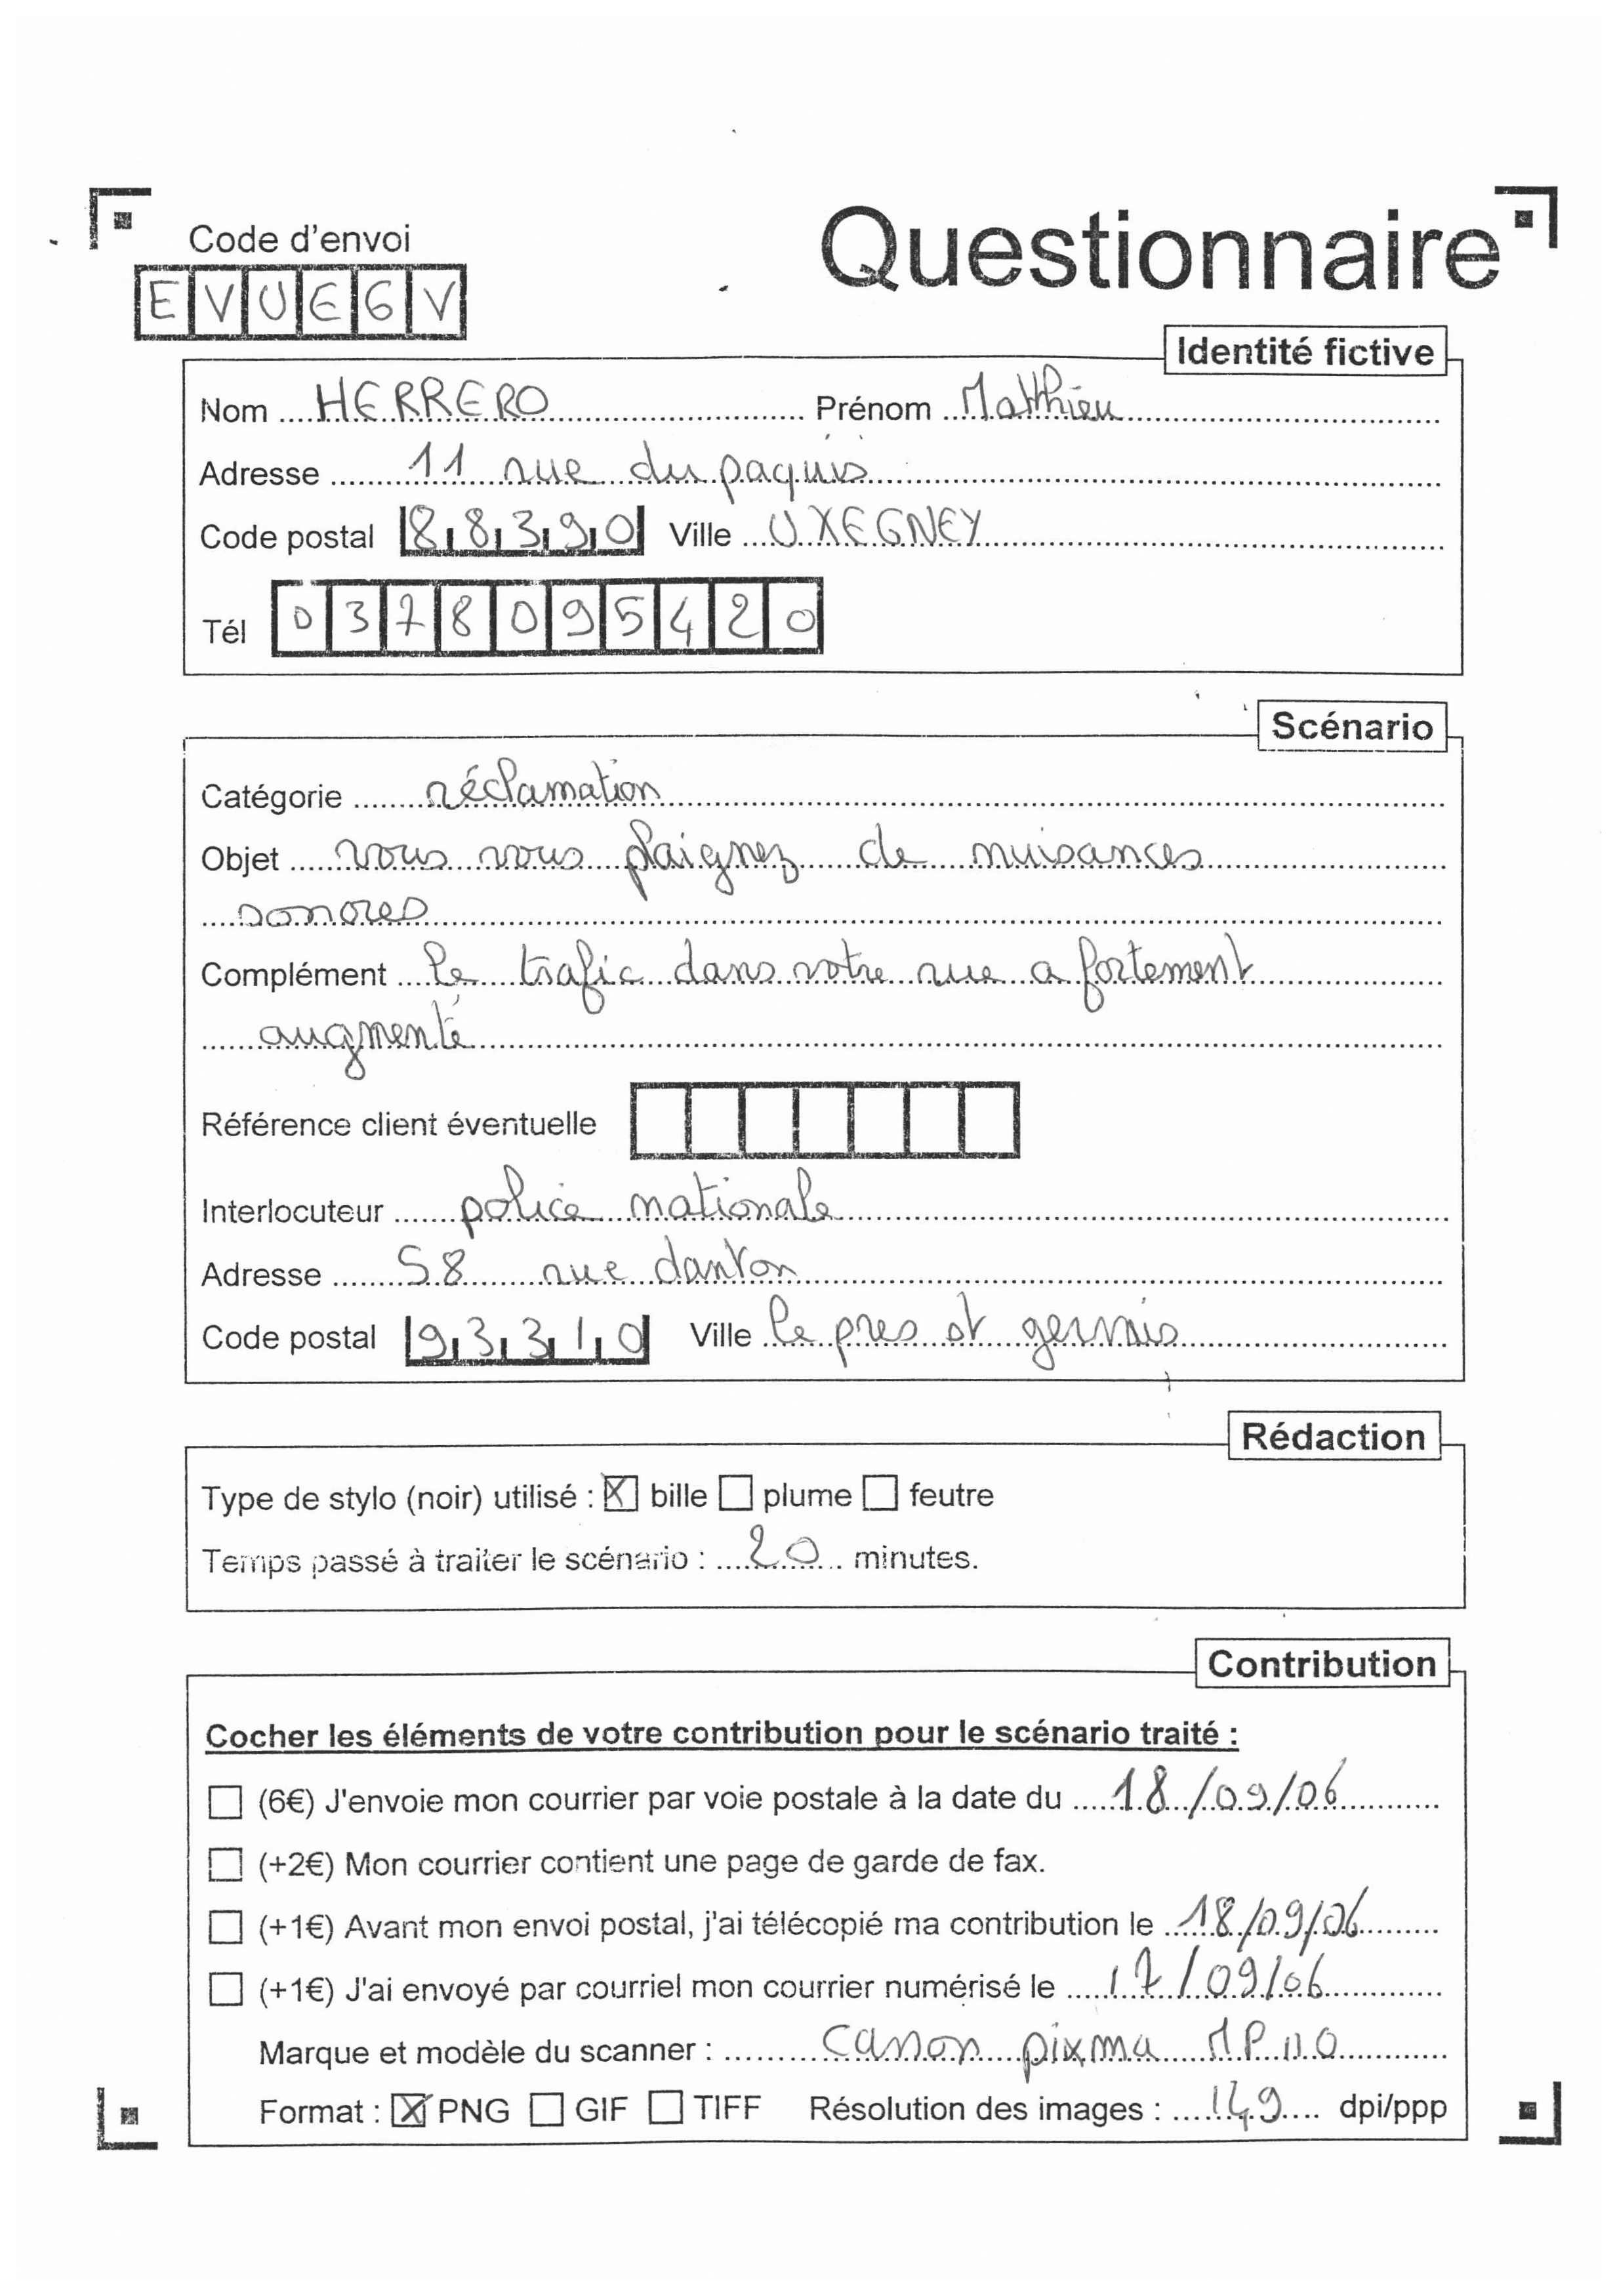 Code d'envoi
Questionnaire
EVUEGV
Identité fictive
Nom HERRERO Prénom Matthieu
Adresse 11 rue du paquis
Code postal 88390 Ville UXEGNEY
Tél 0378095420
Scénario
Catégorie réclamation
Objet vous vous plaignez de nuisances
sonores
Complément le trafic dans votre rue a fortement
augmenté
Référence client éventuelle
Interlocuteur police nationale
Adresse 58 rue danton
Code postal 93310 Ville le pres st gervais
Rédaction
Type de stylo (noir) utilisé : bille plume feutre
Temps passé à traiter le scénario : 20 minutes.
Contribution
Cocher les éléments de votre contribution pour le scénario traité :
(6€) J'envoie mon courrier par voie postale à la date du 18/09/06
(+2€) Mon courrier contient une page de garde de fax.
(+1€) Avant mon envoi postal, j'ai télécopié ma contribution le 18/09/06
(+1€) J'ai envoyé par courriel mon courrier numérisé le 17/09/06
Marque et modèle du scanner : canon pixma MP 110
Format : PNG GIF TIFF Résolution des images : 149 dpi/ppp